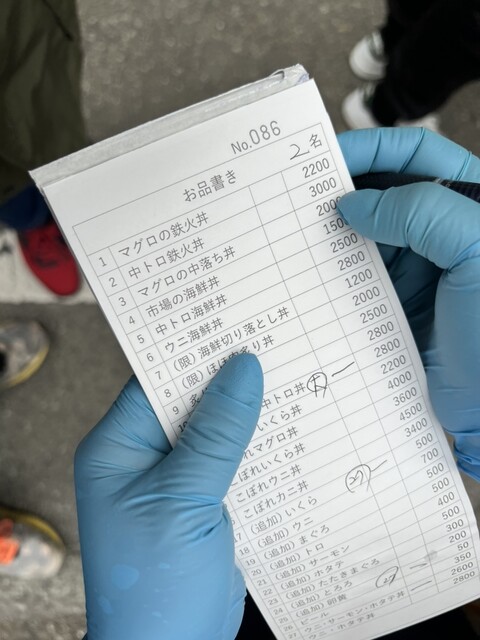 No.086
お品書き 2名
1 マグロの鉄火丼 2200
2 中トロ鉄火丼 3000
3 マグロの中落ち丼 2000
4 市場の海鮮丼 1500
5 中トロ海鮮丼 2500
6 ウニ海鮮丼 2800
7 (限)海鮮切り落とし丼 1200
8 (限)ほほ肉炙り丼 2000
9 2500
10 中トロ丼 2800
いくら丼 2800
れマグロ丼 2200
ぼれいくら丼 4000
こぼれウニ丼 3600
こぼれカニ丼 4500
(追加)いくら 3400
(追加)ウニ 500
18 (追加)まぐろ 700
19 (追加)トロ 500
20 (追加)サーモン 500
21 (追加)ホタテ 400
22 (追加)たたきまぐろ 500
23 (追加)とろろ 300
24 (追加)卵黄 200
ビール 350
ウニ・サーモン・ホタテ丼 50
ホタテ丼 2600
2800